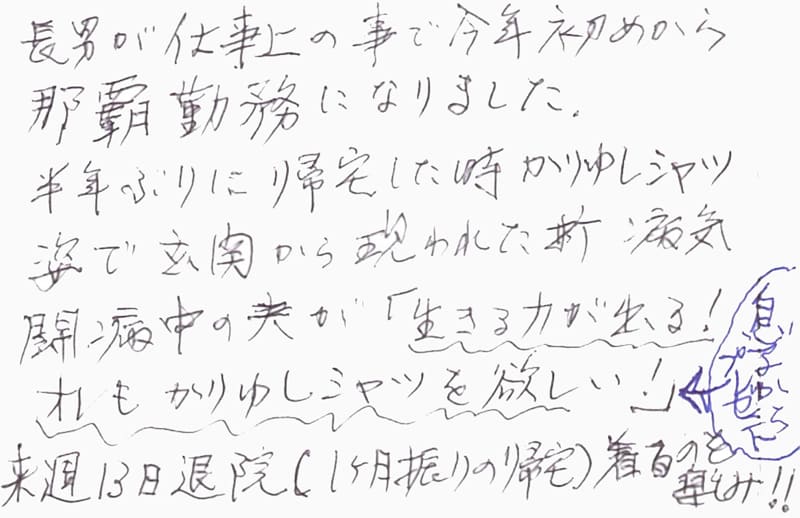 長男が仕事上の事で今年初めから
那覇勤務になりました。
半年ぶりに帰宅した時かりゆしシャツ
姿で玄関から現われた折 病気
闘病中の夫が「生きる力が出る!
オレもかりゆしシャツを欲しい!」
来週13日退院(1ヶ月振りの帰宅)着るのを
楽しみ!!